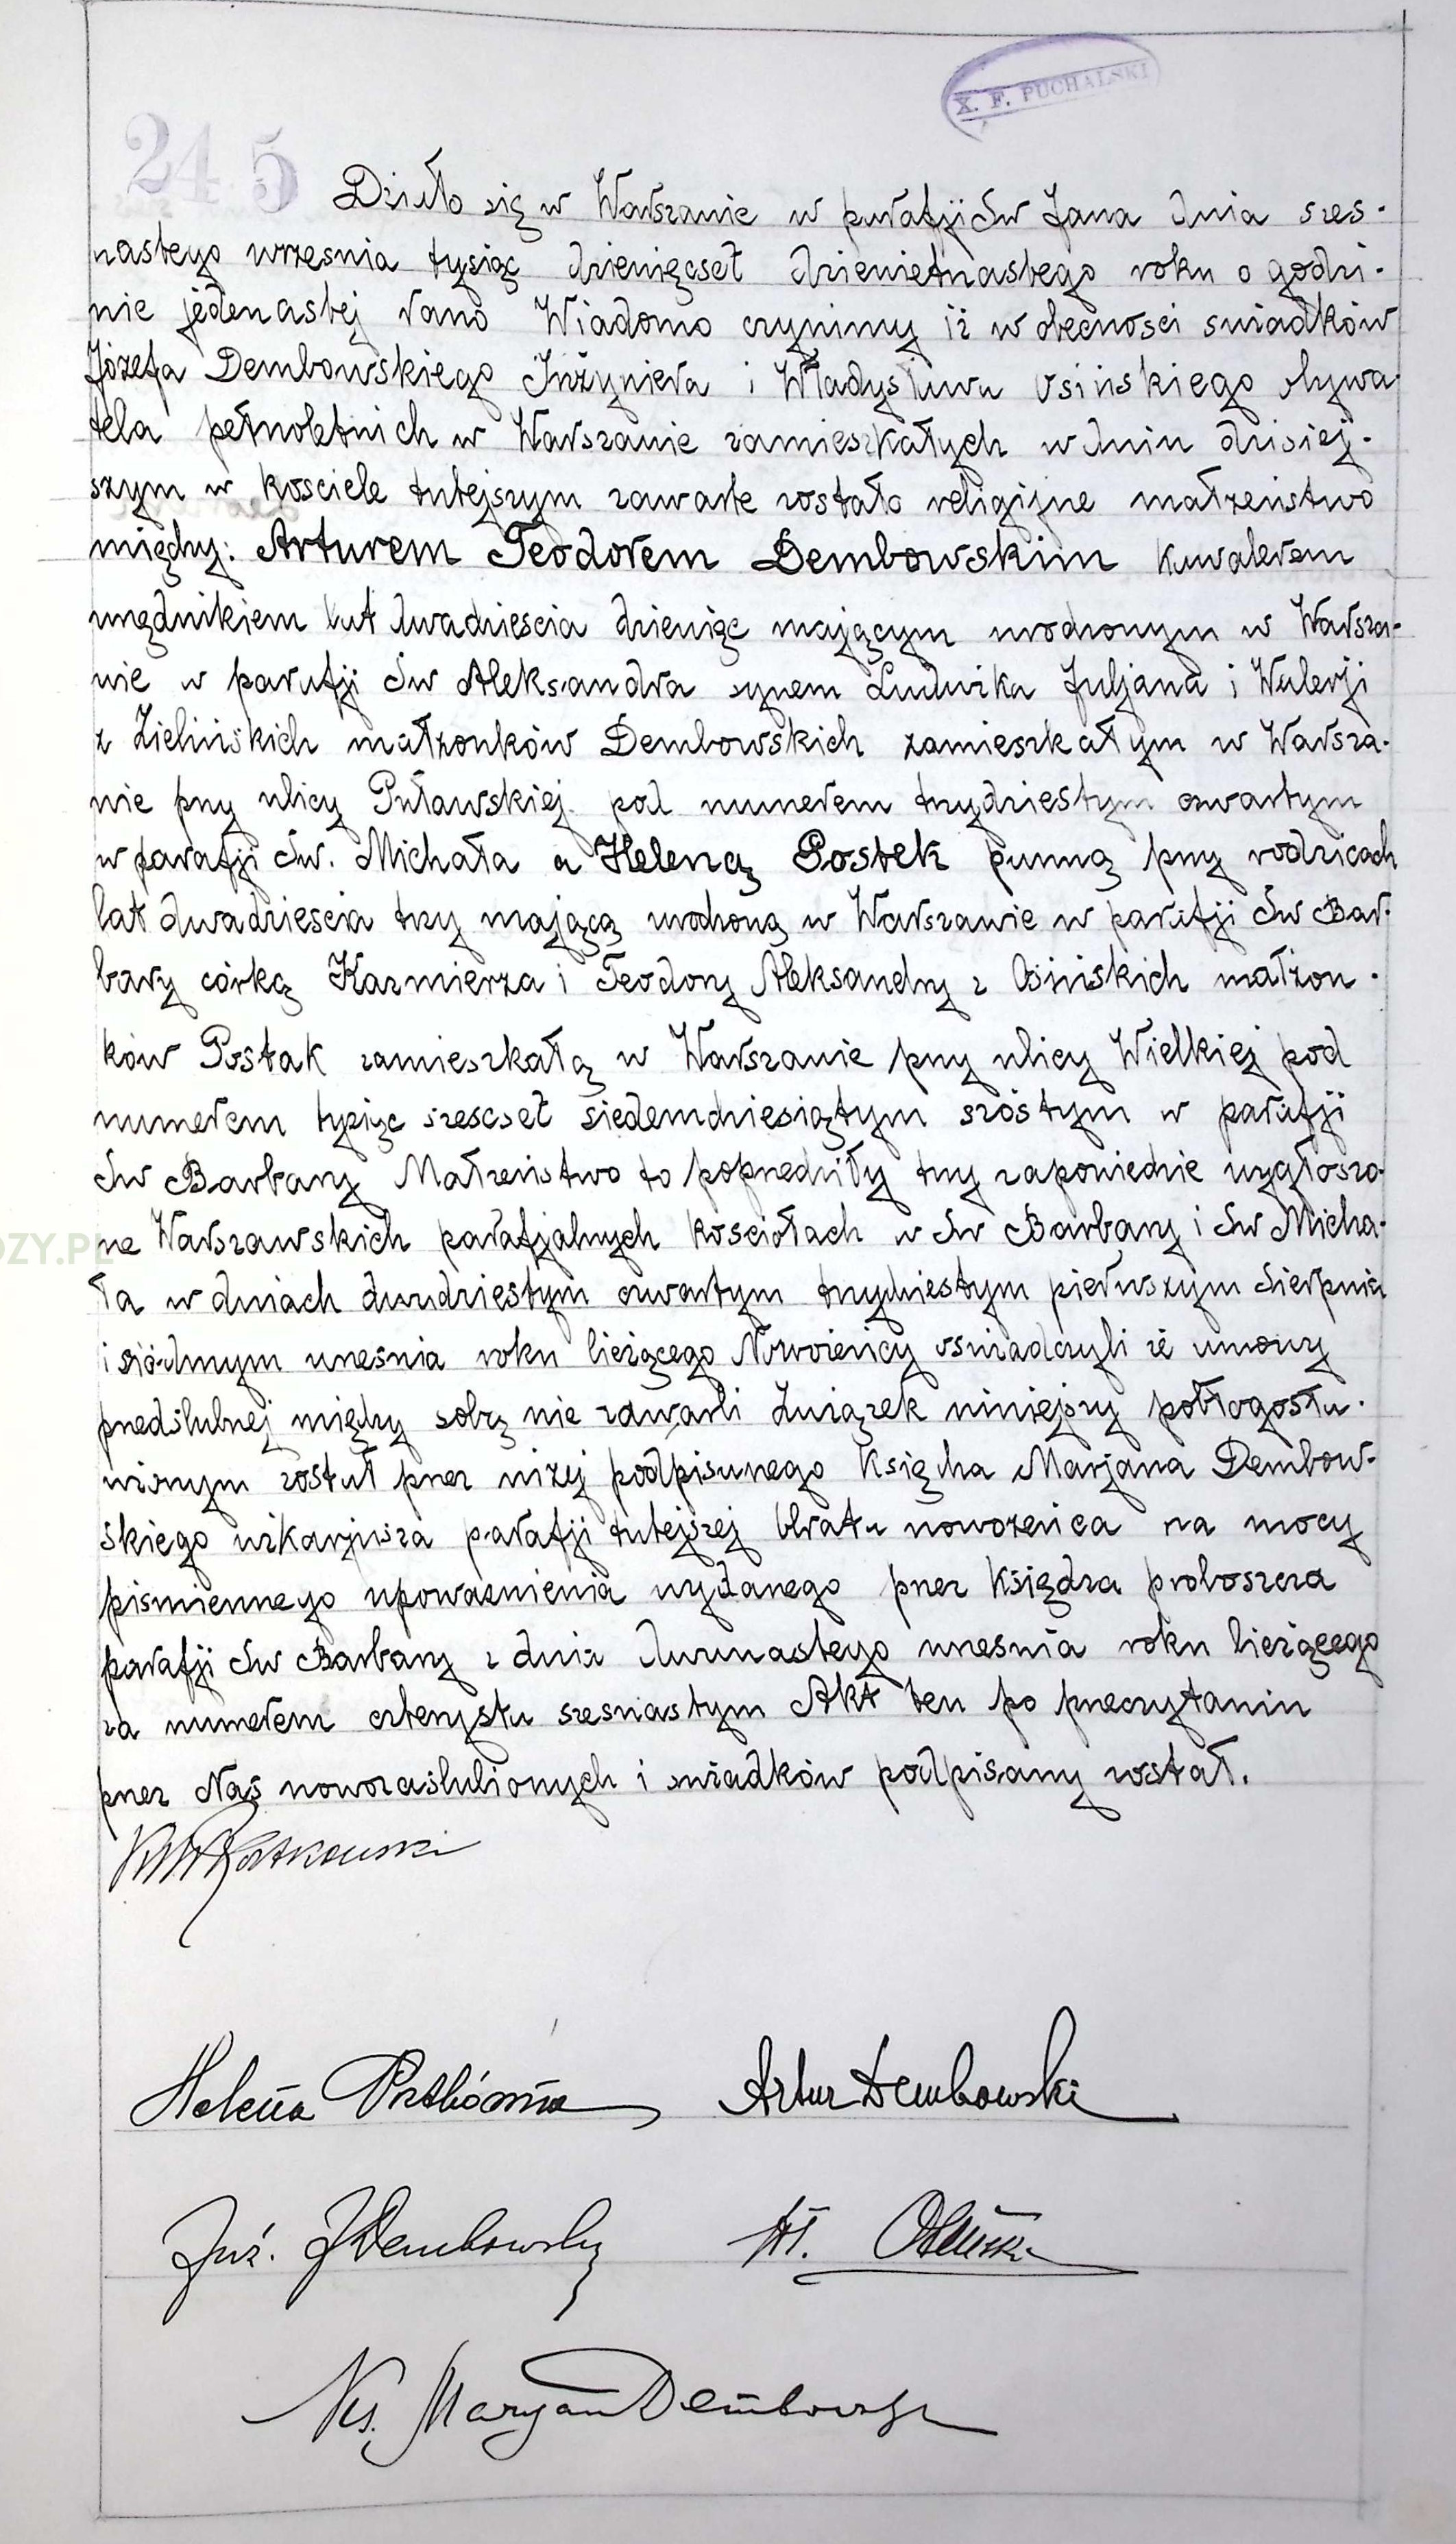 X. F. PUCHALSKI
245
Działo się w Warszawie w parafji Św Jana dnia szes-
nastego wrzesnia tysiąc dziewięcset dziewiętnastego roku o godzi-
nie jedenastej rano Wiadomo czynimy iż w obecnosci swiadków
Józefa Dembowskiego Inżyniera i Władysława Osińskiego obywa-
tela pełnoletnich w Warszawie zamieszkałych w dniu dzisiej-
szym w kosciele tutejszym zawarte zostało religijne małżeństwo
między: Arturem Teodorem Dembowskim kawalerem
urzędnikiem lat dwadziescia dziewięc mającym urodzonym w Warsza-
wie w parafji Św Aleksandra synem Ludwika Juljana i Walerji
z Zielińskich małżonków Dembowskich zamieszkałym w Warsza-
wie przy ulicy Puławskiej pod numerem trzydziestym czwartym
w parafji Św. Michała a Heleną Postek panną przy rodzicach
lat dwadziescia trzy mającą urodzoną w Warszawie w parafji Św Bar-
bary córką Kazmierza i Teodory Aleksandry z Osińskich małżon-
ków Postak zamieszkałą w Warszawie przy ulicy Wielkiej pod
numerem tysiąc szescset siedemdziesiątym szóstym w parafji
Św Barbary Małżeństwo to poprzedziły trzy zapowiedzie wygłoszo-
ne Warszawskich parafjalnych kosciołach w Św Barbary i Św Micha-
ła w dniach dwudziestym czwartym trzydziestym pierwszym Sierpnia
i siódmym wrzesnia roku bieżącego Nowożeńcy oswiadczyli że umowy
przedślubnej między sobą nie zawarli Związek niniejszy pobłogosła-
wionym został przez niżej podpisanego Księdza Marjana Dembow-
skiego wikarjusza parafji tutejszej brata nowożeńca na mocy
pismiennego upoważnienia wydanego przez Księdza proboszcza
parafji Św Barbary z dnia dwunastego wrzesnia roku bieżącego
za numerem czterystu szesnastym Akt ten po przeczytaniu
przez Nas nowozaslubionych i swiadków podpisany został.
Helena Artur Dembowski
Inż. J Dembowski Wł. Osiński
Ks. Maryan Dembowski